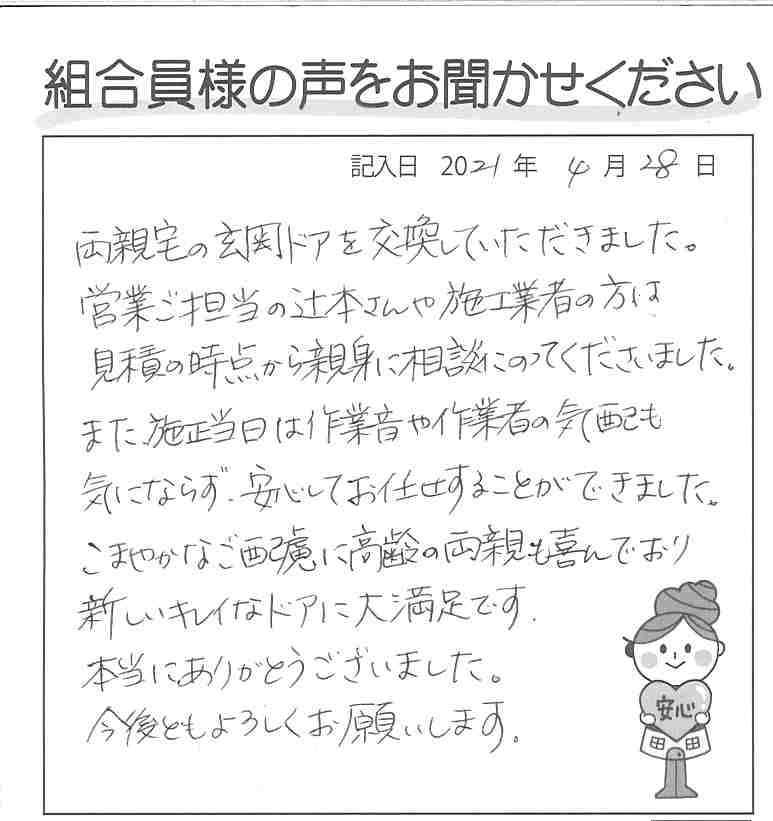 組合員様の声をお聞かせください
記入日 2021年 4月28日
両親宅の玄関ドアを交換していただきました。
営業ご担当の辻本さんや施工業者の方は
見積の時点から親身に相談にのってくださいました。
また、施工当日は作業音や作業者の気配も
気にならず、安心してお任せすることができました。
こまやかなご配慮に高齢の両親も喜んでおり
新しいキレイなドアに大満足です。
本当にありがとうございました。
今後ともよろしくお願いします。
安心